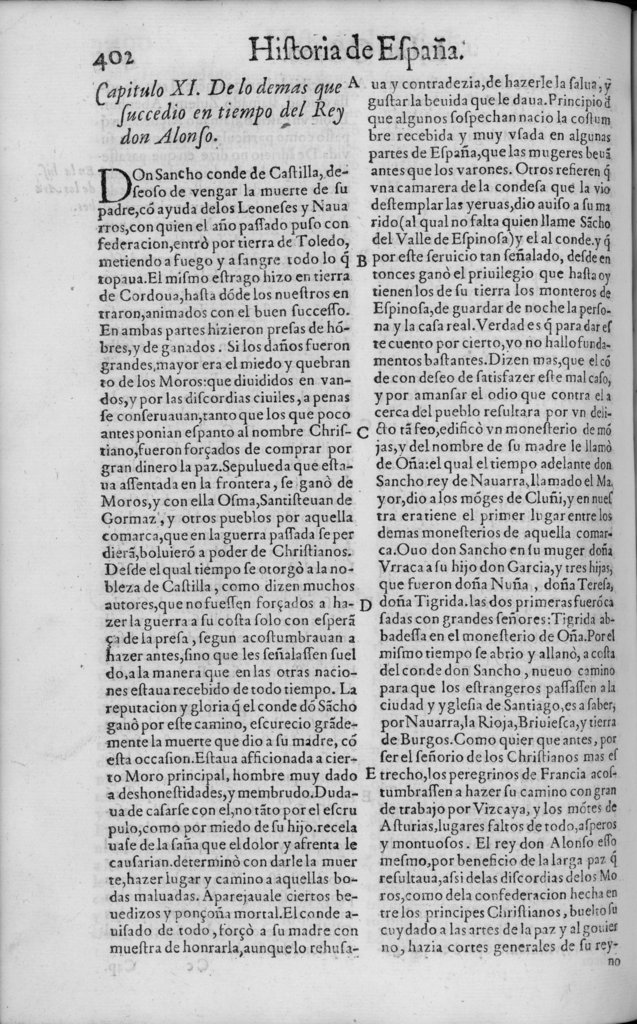 402
Historia de España.
Capitulo XI. De lo demas que
succedio en tiempo del Rey
don Alonso.
DOn Sancho conde de Castilla, de-
seoso de vengar la muerte de su
padre,cõ ayuda delos Leoneses y Naua
rros,con quien el año passado puso con
federacion,entrò por tierra de Toledo,
metiendo a fuego y a sangre todo lo q̃
topaua.El mismo estrago hizo en tierra
de Cordoua,hasta dõde los nuestros en
traron,animados con el buen successo.
En ambas partes hizieron presas de hõ-
bres,y de ganados. Si los daños fueron
grandes,mayor era el miedo y quebran
to de los Moros:que diuididos en van-
dos,y por las discordias ciuiles,a penas
se conseruauan,tanto que los que poco
antes ponian espanto al nombre Chris-
tiano,fueron forçados de comprar por
gran dinero la paz.Sepulueda que esta-
ua assentada en la frontera, se ganò de
Moros,y con ella Osma,Santisteuan de
Gormaz, y otros pueblos por aquella
comarca,que en la guerra passada se per
dierã,boluierõ a poder de Christianos.
Desde el qual tiempo se otorgò a la no-
bleza de Castilla, como dizen muchos
autores,que no fuessen forçados a ha-
zer la guerra a su costa solo con esperã
ça de la presa, segun acostumbrauan a
hazer antes,sino que les señalassen suel
do,a la manera que en las otras nacio-
nes estaua recebido de todo tiempo. La
reputacion y gloria q̃ el conde dõ Sãcho
ganò por este camino, escurecio grãde-
mente la muerte que dio a su madre, cõ
esta occasion.Estaua afficionada a cier-
to Moro principal, hombre muy dado
a deshonestidades,y membrudo.Duda-
ua de casarse con el,no tãto por el escru
pulo,como por miedo de su hijo.recela
uase de la saña que el dolor y afrenta le
causarian.determinò con darle la muer
te,hazer lugar y camino a aquellas bo-
das maluadas. Aparejauale ciertos be-
uedizos y ponçoña mortal.El conde a-
uisado de todo,forçò a su madre con
muestra de honrarla,aunque lo rehusa-
A
B
C
D
E
ua y contradezia,de hazerle la salua, y
gustar la beuida que le daua.Principio d̃
que algunos sospechan nacio la costum
bre recebida y muy vsada en algunas
partes de España,que las mugeres beuã
antes que los varones. Otros refieren q̃
vna camarera de la condesa que la vio
destemplar las yeruas,dio auiso a su ma
rido(al qual no falta quien llame Sãcho
del Valle de Espinosa)y el al conde.y q̃
por este seruicio tan señalado, desde en
tonces ganò el priuilegio que hasta oy
tienen los de su tierra los monteros de
Espinosa,de guardar de noche la perso-
na y la casa real.Verdad es q̃ para dar es
te cuento por cierto,yo no hallo funda-
mentos bastantes.Dizen mas,que el cõ
de con deseo de satisfazer este mal caso,
y por amansar el odio que contra el a
cerca del pueblo resultara por vn deli-
cto tã feo,edificò vn monesterio de mõ
jas,y del nombre de su madre le llamò
de Oña:el qual el tiempo adelante don
Sancho rey de Nauarra,llamado el Ma
yor,dio a los mõges de Cluñi,y en nues
tra era tiene el primer lugar entre los
demas monesterios de aquella comar-
ca.Ouo don Sancho en su muger doña
Vrraca a su hijo don Garcia,y tres hijas,
que fueron doña Nuña, doña Teresa,
doña Tigrida.las dos primeras fuerõ ca
sadas con grandes señores:Tigrida ab-
badessa en el monesterio de Oña.Por el
mismo tiempo se abrio y allanò,a costa
del conde don Sancho, nueuo camino
para que los estrangeros passassen a la
ciudad y yglesia de Santiago,es a saber,
por Nauarra,la Rioja,Briuiesca,y tierra
de Burgos.Como quier que antes, por
ser el señorio de los Christianos mas es
trecho,los peregrinos de Francia acos-
tumbrassen a hazer su camino con gran
de trabajo por Vizcaya, y los mõtes de
Asturias,lugares faltos de todo,asperos
y montuosos. El rey don Alonso esso
mesmo,por beneficio de la larga paz q̃
resultaua,assi de las discordias delos Mo
ros,como dela confederacion hecha en
tre los principes Christianos, buelto su
cuydado a las artes de la paz y al gouier
no, hazia cortes generales de su rey-
no